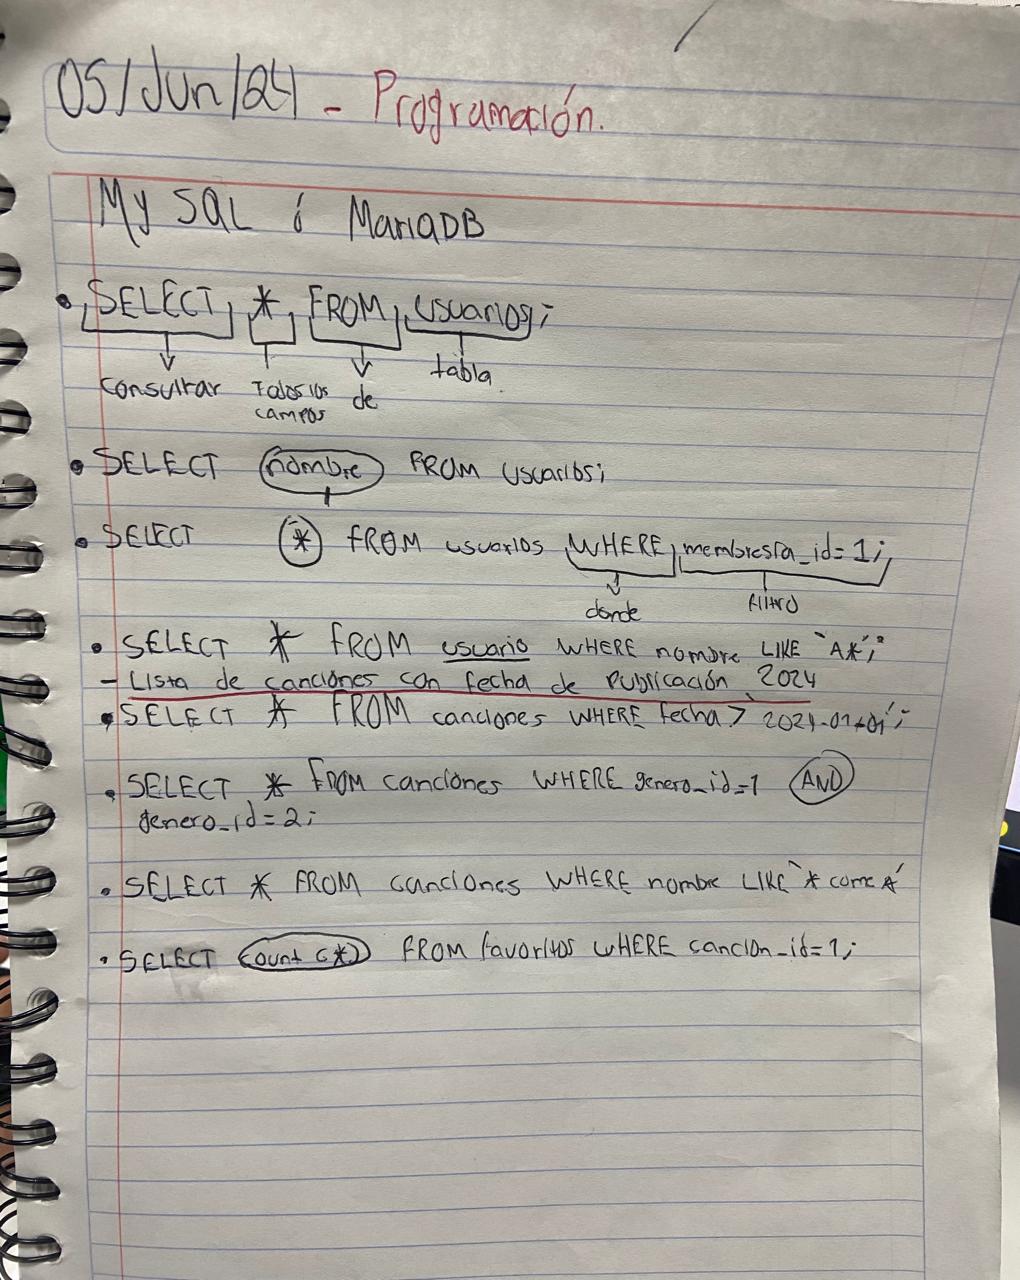 05/Jun/24 - Programación.
My SQL ó MariaDB
• SELECT * FROM usuarios;
consultar Todos los campos de tabla.
• SELECT nombre FROM usuarios;
• SELECT * FROM usuarios WHERE membresía_id=1;
donde filtro
• SELECT * FROM usuario WHERE nombre LIKE `A*´;
- Lista de canciones con fecha de Publicación 2024
• SELECT * FROM canciones WHERE fecha > `2024-01-01´;
• SELECT * FROM canciones WHERE genero_id=1 AND
genero_id=2;
• SELECT * FROM canciones WHERE nombre LIKE `* come *´
• SELECT count (*) FROM favoritos WHERE cancion_id=1;